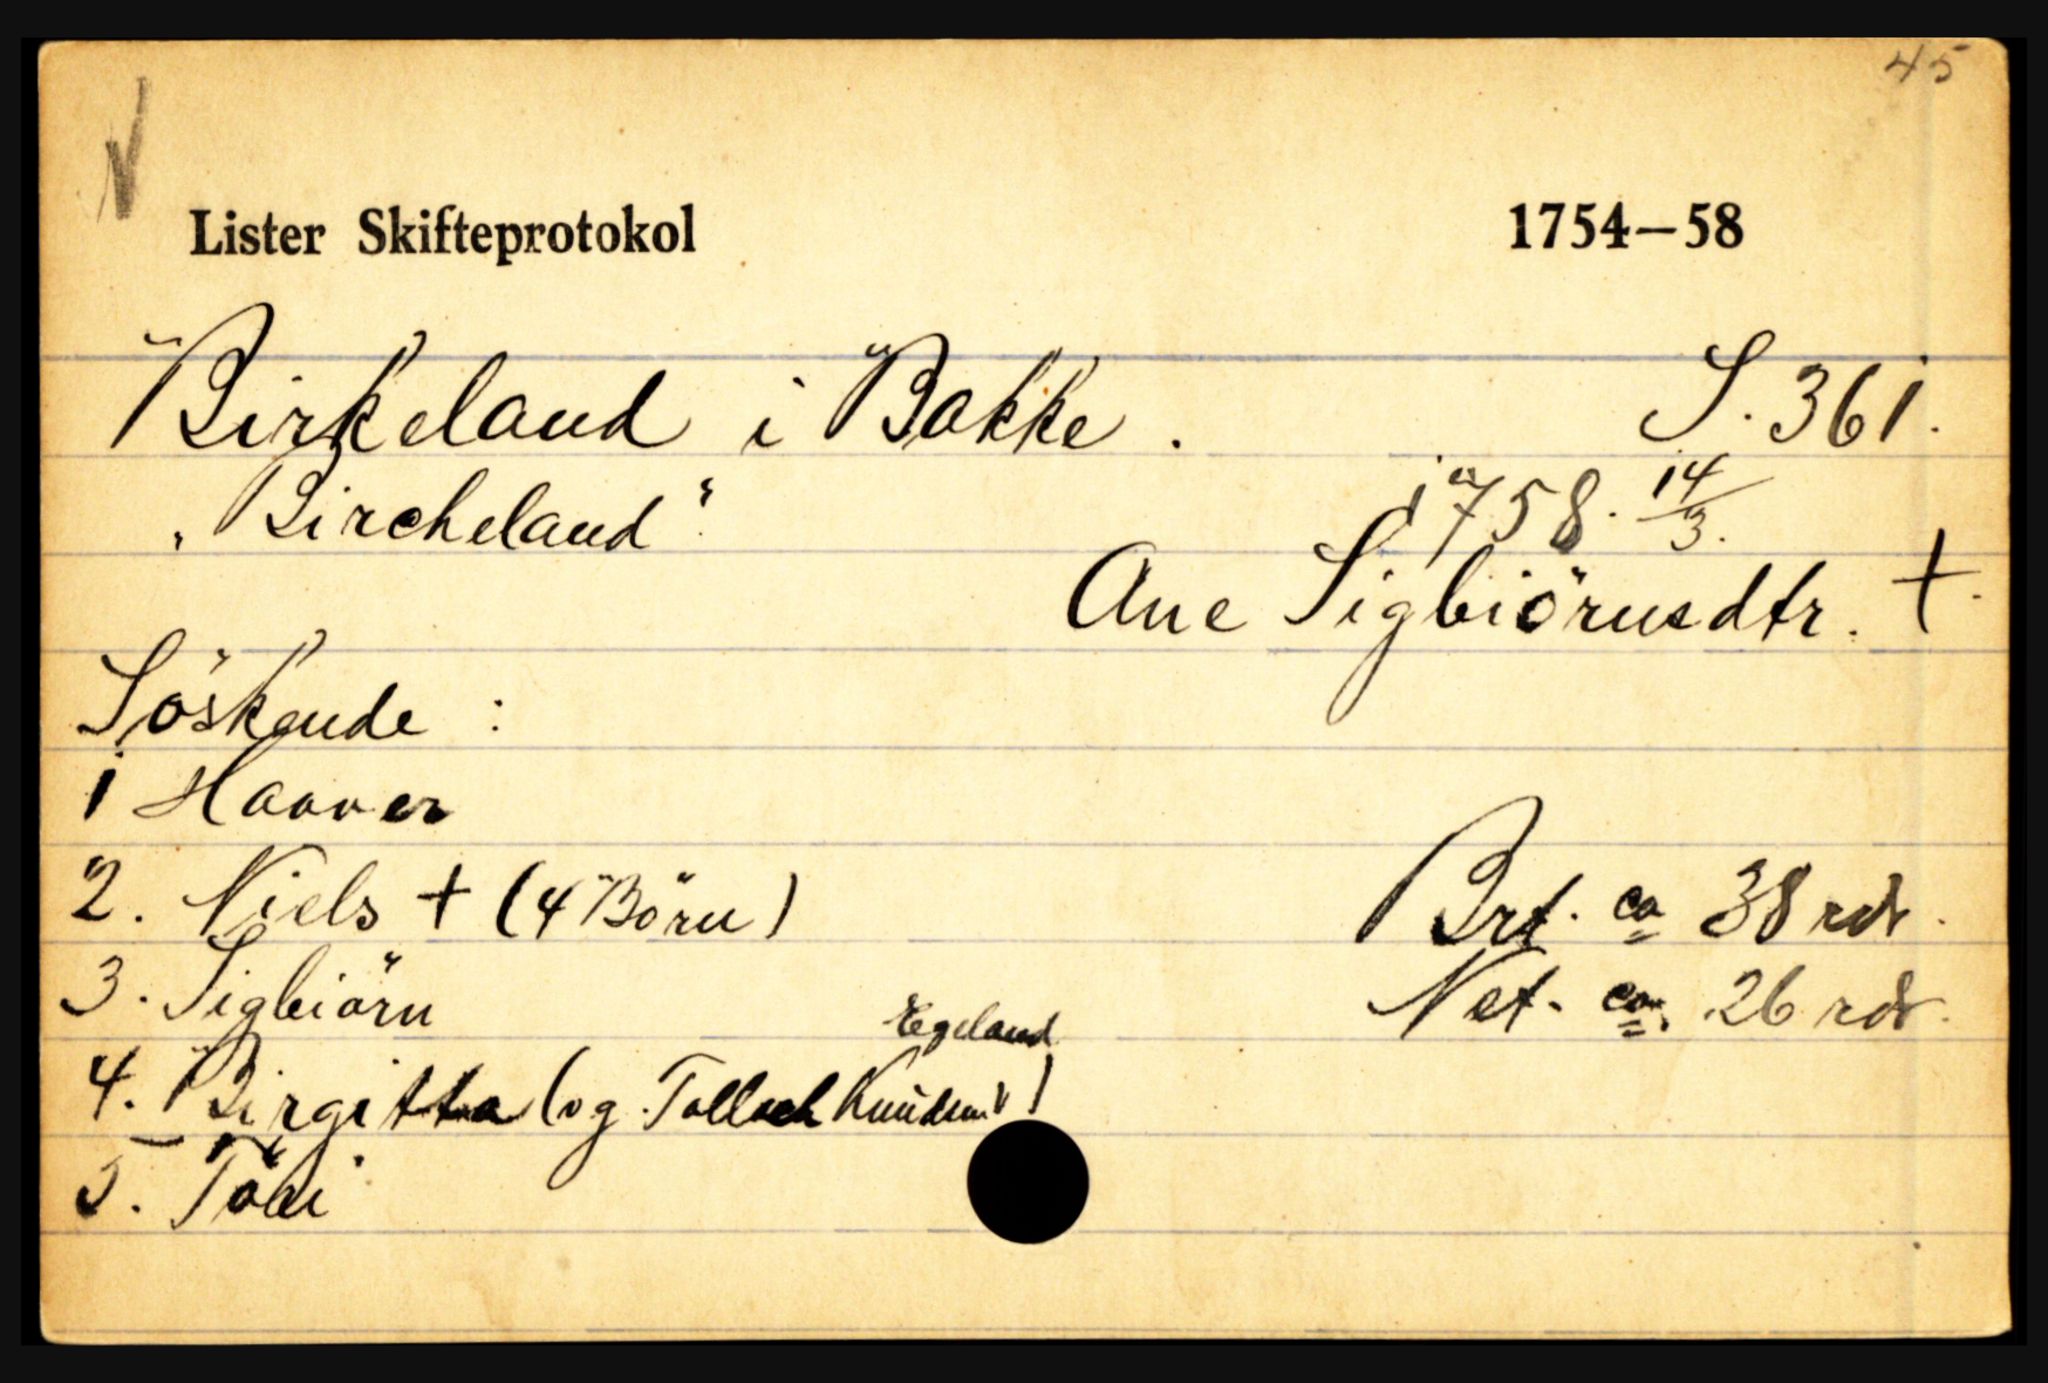 45
Lister Skifteprotokol 1754–58
Birkeland i Bakke. S. 361.
„Bircheland“ 1758. 14/3.
Ane Sigbiörnsdtr. †.
Söskende :
1 Haaver
2. Niels † (4 Börn) Brt. ca 38 rdr.
3. Sigbiörn Net. ca. 26 rdr.
Egeland
4. Birgitta (og Tollach Knudsen)
5. Tori